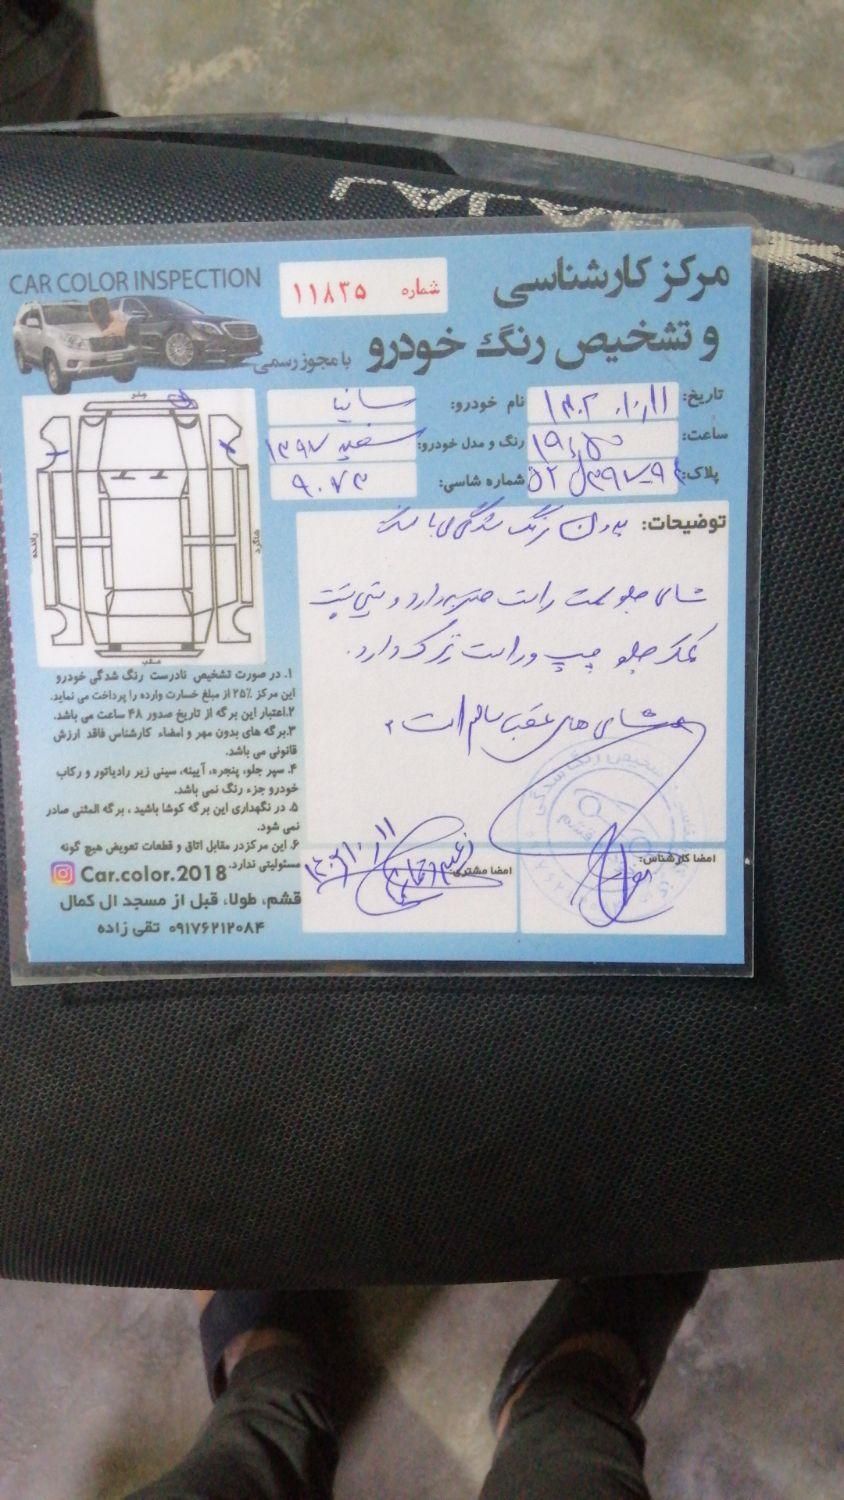 CAR COLOR INSPECTION
شماره ۱۱۸۳۵
مرکز کارشناسی
و تشخیص رنگ خودرو با مجوز رسمی
تاریخ: ۱۴۰۲/۱۰/۱۱
نام خودرو: ساینا
ساعت:
رنگ و مدل خودرو: سفید ۱۳۹۷
پلاک:
شماره شاسی: ۹۰۷۳
جلو
راننده
شاگرد
عقب
توضیحات: بدون رنگ شدگی می باشد
شاسی جلو سمت راست ضربه دارد و سینی پشت
کمک جلو چپ و راست ترک دارد.
شاسی های عقب سالم است
۱. در صورت تشخیص نادرست رنگ شدگی خودرو
این مرکز ۲۵٪ از مبلغ خسارت وارده را پرداخت می نماید.
۲.اعتبار این برگه از تاریخ صدور ۴۸ ساعت می باشد.
۳.برگه های بدون مهر و امضاء کارشناس فاقد ارزش
قانونی می باشد.
۴. سپر جلو، پنجره، آیینه، سینی زیر رادیاتور و رکاب
خودرو جزء رنگ نمی باشد.
۵. در نگهداری این برگه کوشا باشید ، برگه المثنی صادر
نمی شود.
۶. این مرکزدر مقابل اتاق و قطعات تعویض هیچ گونه
مسئولیتی ندارد.
Car.color.2018
قشم، طولا، قبل از مسجد ال کمال
۰۹۱۷۶۲۱۲۰۸۴ تقی زاده
امضا مشتری:
۱۴۰۲/۱۰/۱۱
امضا کارشناس: